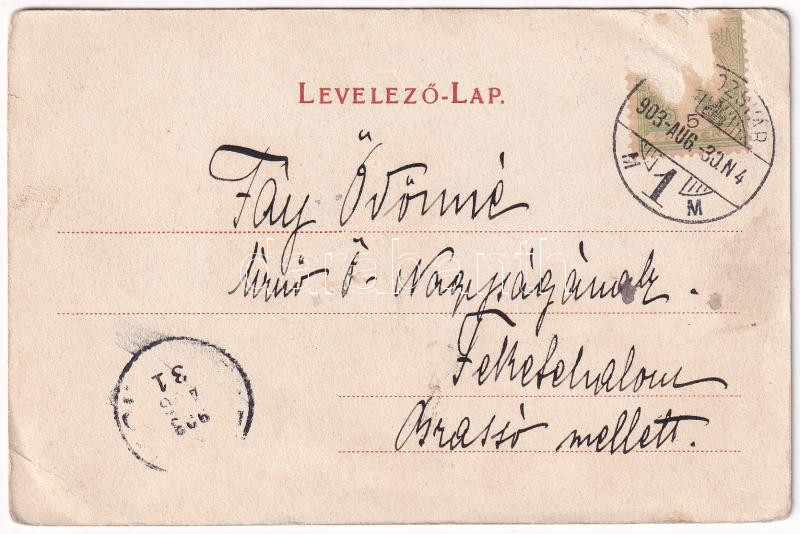 LEVELEZŐ-LAP.
OZSVÁR
5
903-AUG.-30.N4
M 1 M
Fáy Ödönné
Úrnő Ő-Nagyságának.
Feketehalom
Brassó mellett.
31
darabanth